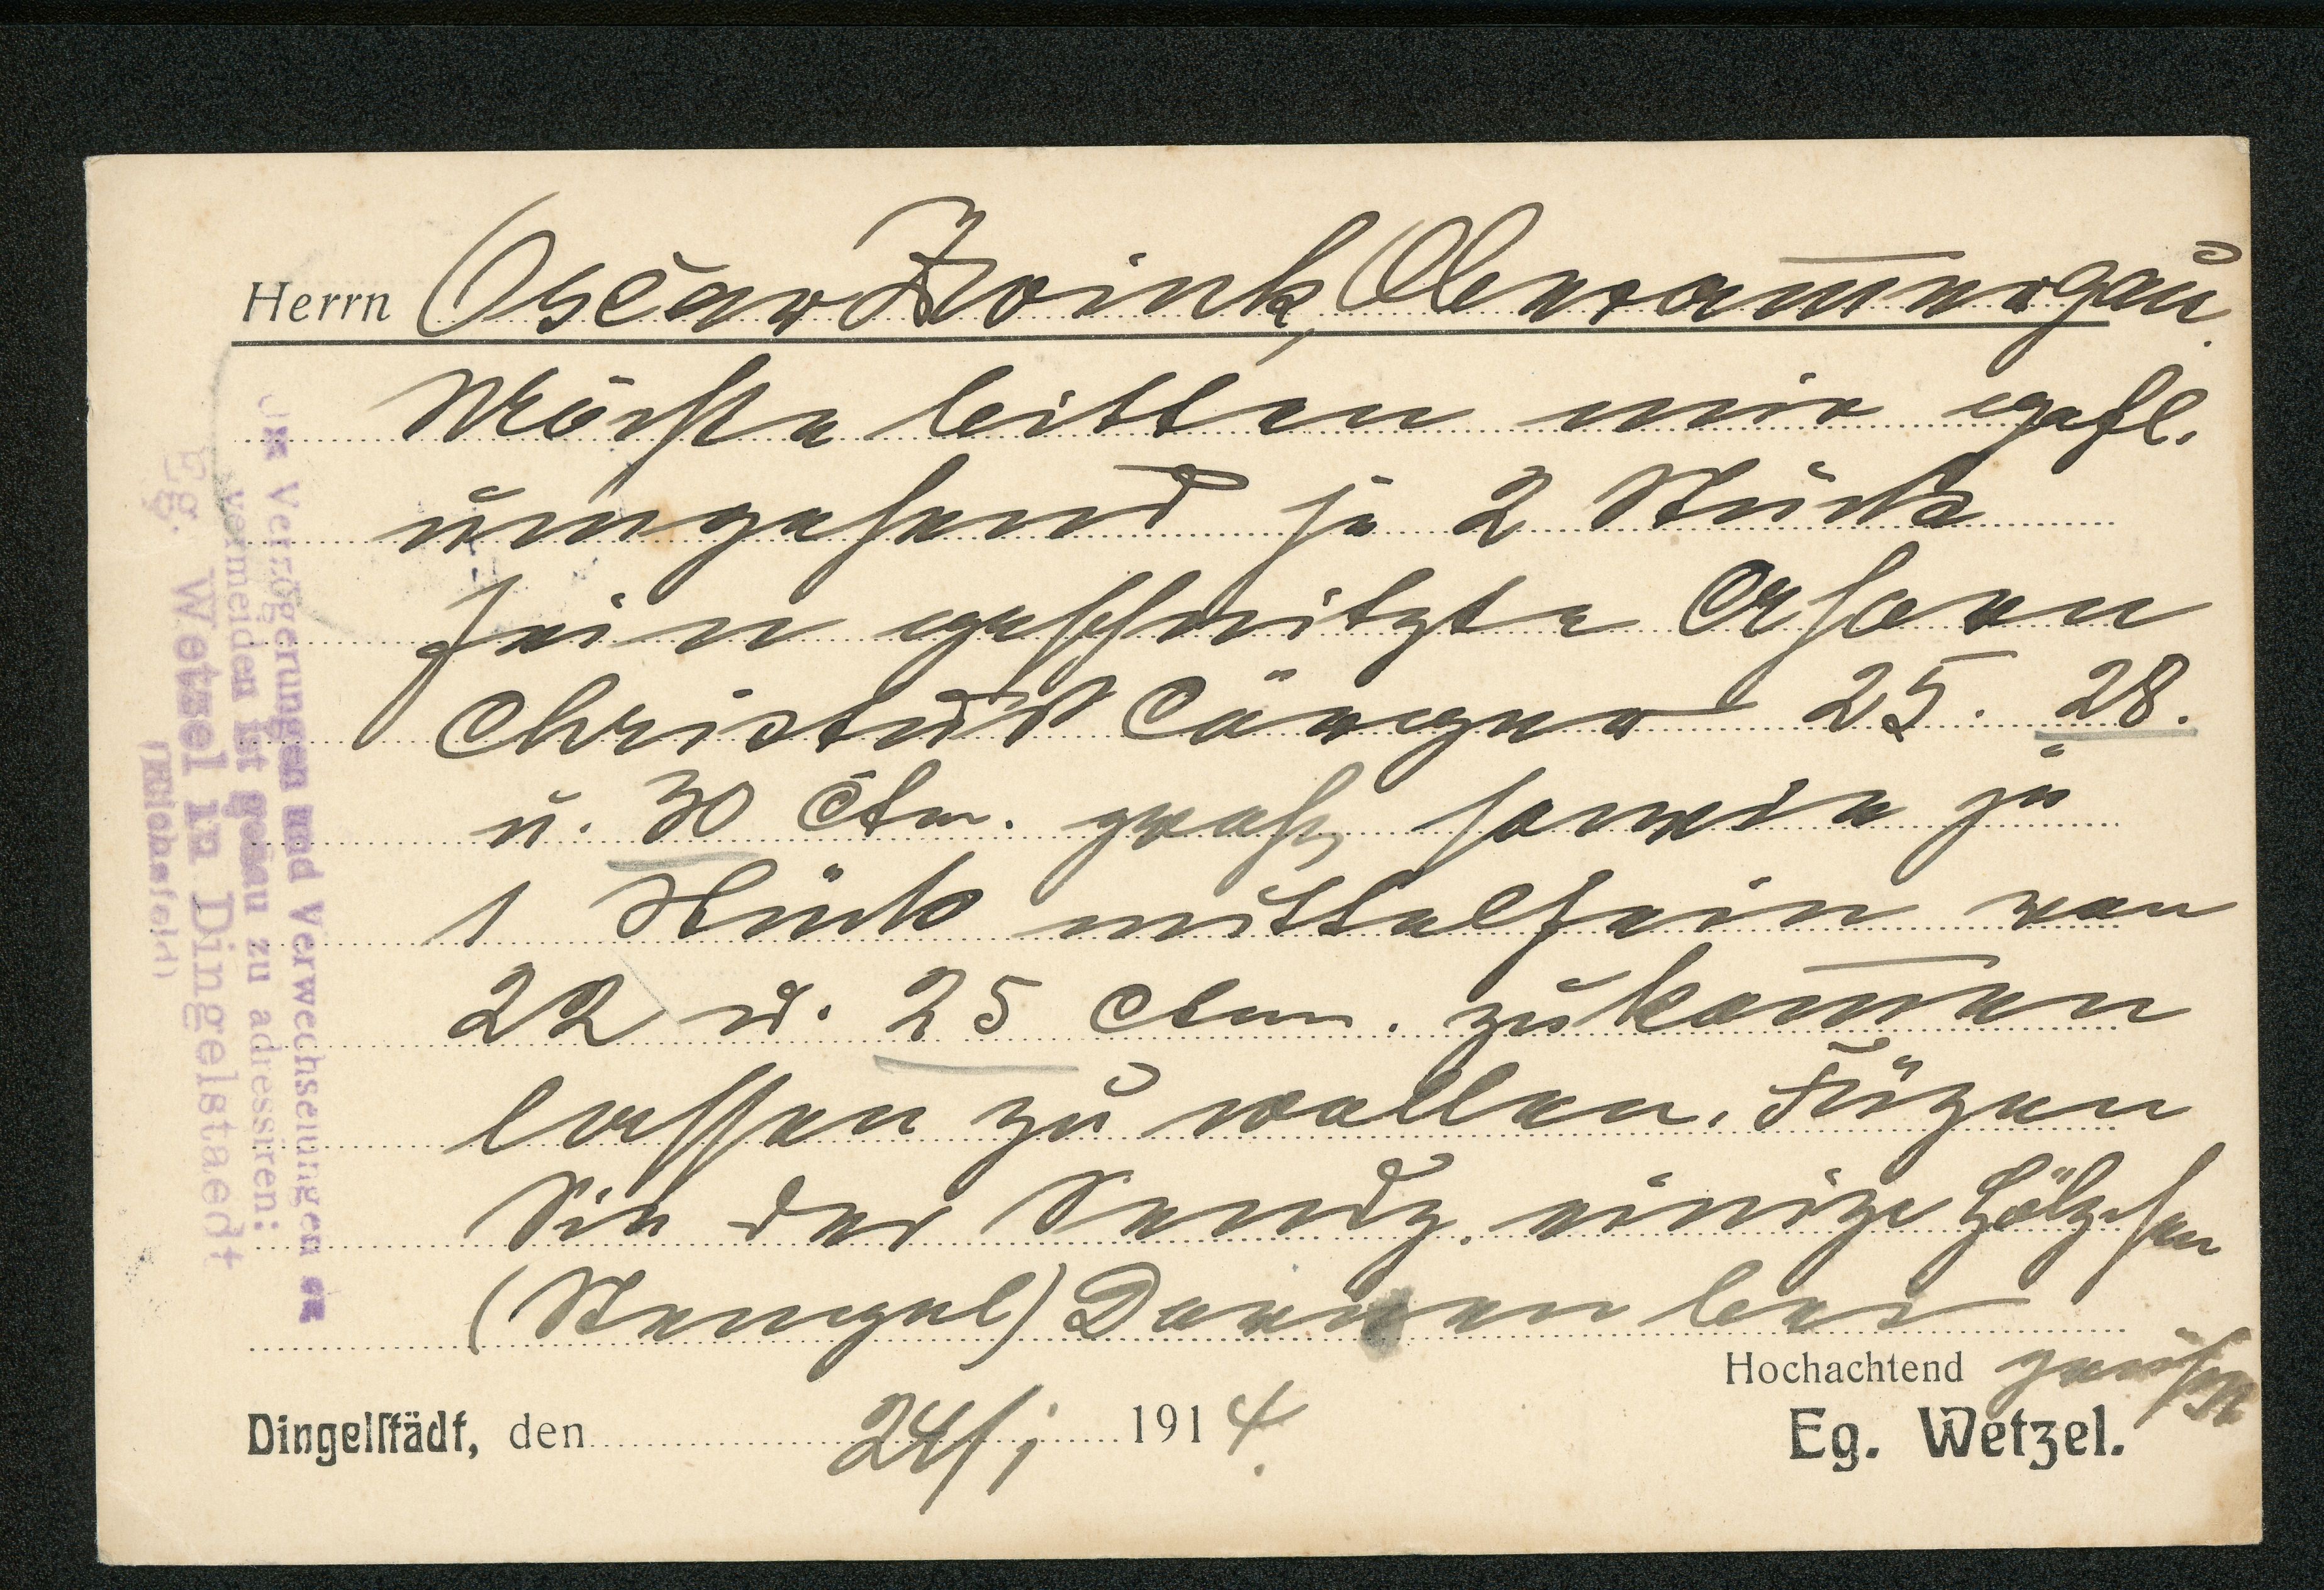 Herrn Oscar Zwink, Oberam̅ergau.
Möchte bitten mir gefl.
umgehend je 2 Stück
fein geschnitzte Ahorn
Christus Cörper 25. 28.
u. 30 Ctm. groß, sowie je
1 Stück mittelfein von
22 u. 25 Ctm. zukom̅en
lassen zu wollen. Fügen
Sie der Sendg. einige Hölzchen
(Stengel) Dornen bei
Hochachtend
Dingelstädt, den 24/1 1914.
Eg. Wetzel.
Um Verzögerungen und Verwechselungen zu
vermeiden ist genau zu adressiren:
Eg. Wetzel in Dingelstaedt
(Eichsfeld)